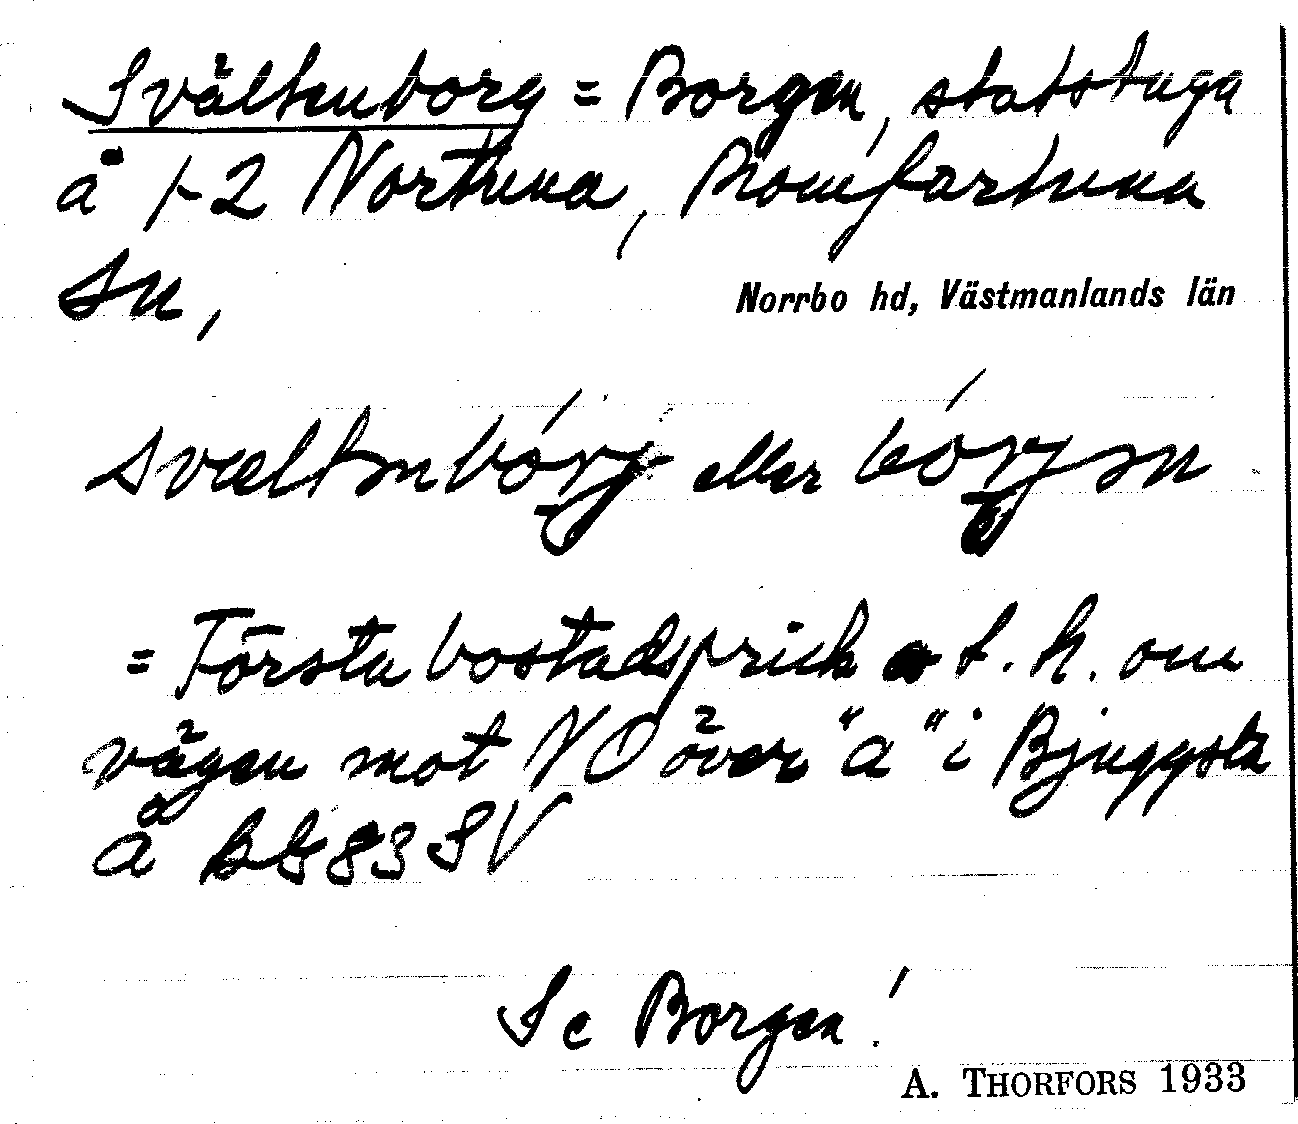 Svältenborg = Borgen, statstuga
å 1-2 Nortuna, Romfartuna
sn,
Norrbo hd, Västmanlands län
svältenbórj eller bórjen
= Första bostadsprick t.h. om
vägen mot NO över "a" i Bjuggsta
å Bl 83 SV
Se Borgen!
A. THORFORS 1933